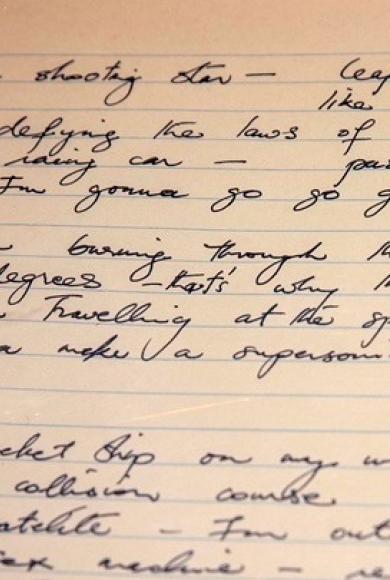 shooting star — leap
like
defying the laws of
racing car — pas
I'm gonna go go g
burning through th
degrees — that's why
Travelling at the sp
make a supersoni
ocket ship on my w
collision course
atellite — I'm out
sex machine — re